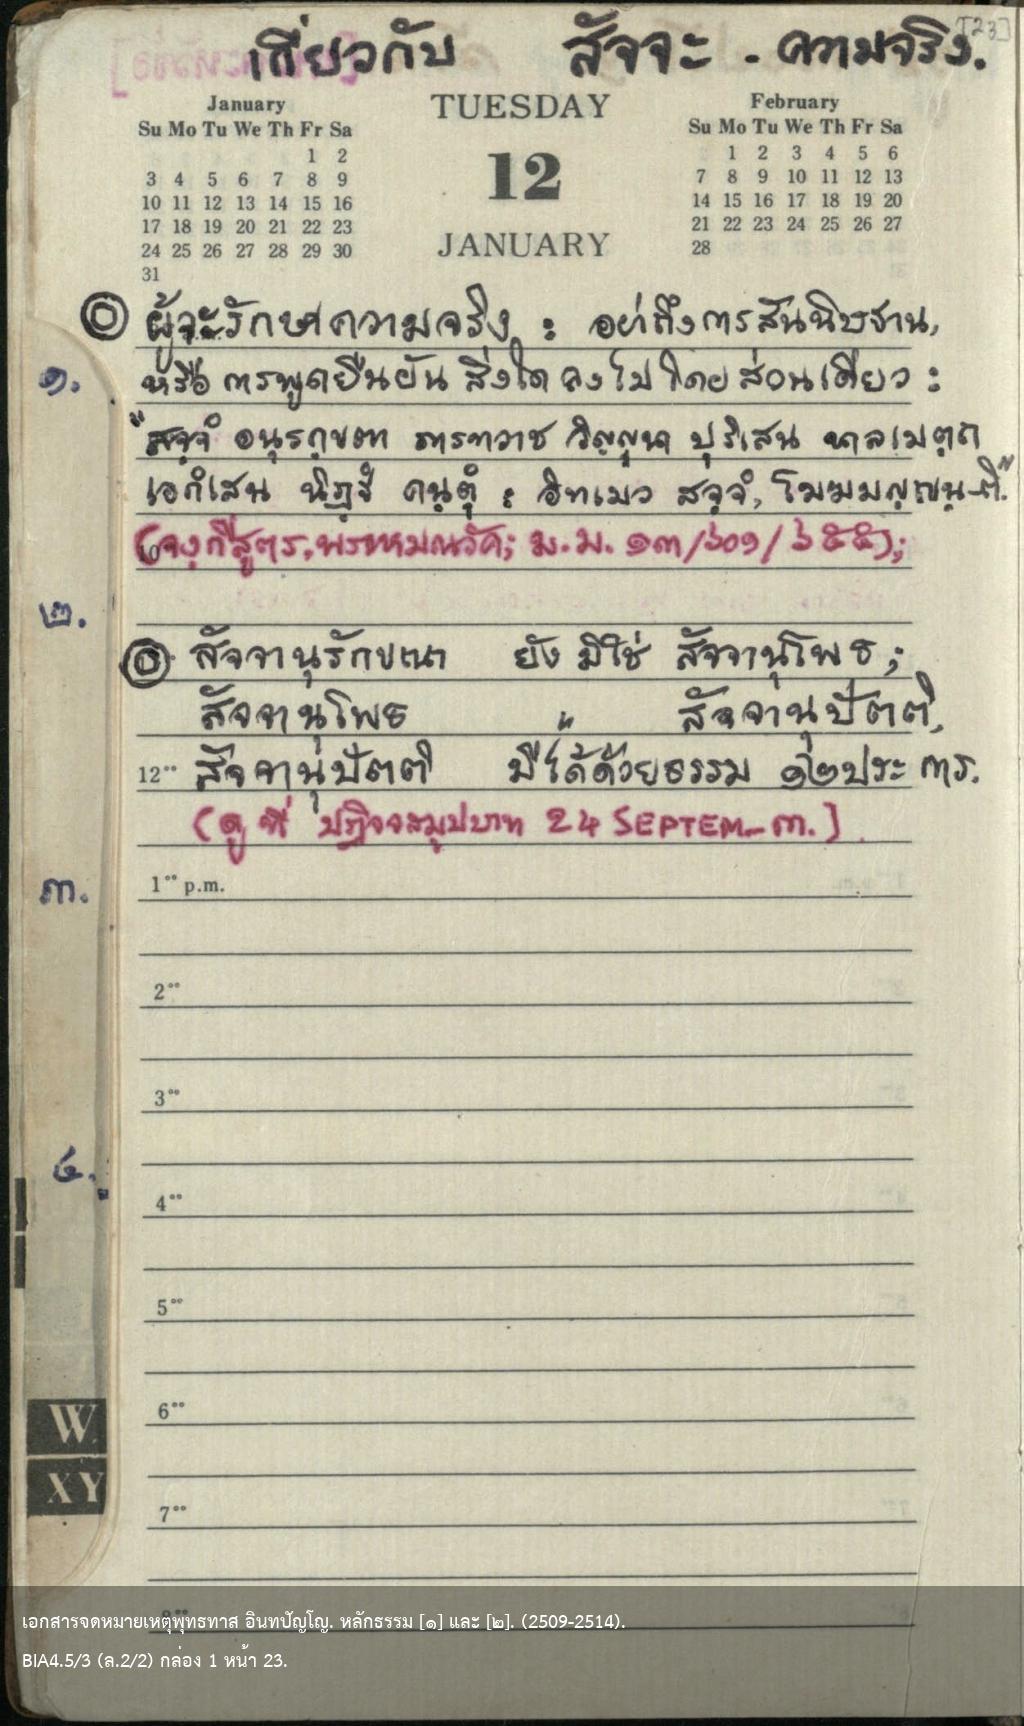 [23]
เกี่ยวกับ สัจจะ - ความจริง.
January
Su Mo Tu We Th Fr Sa
1 2
3 4 5 6 7 8 9
10 11 12 13 14 15 16
17 18 19 20 21 22 23
24 25 26 27 28 29 30
31
TUESDAY
12
JANUARY
February
Su Mo Tu We Th Fr Sa
1 2 3 4 5 6
7 8 9 10 11 12 13
14 15 16 17 18 19 20
21 22 23 24 25 26 27
28
ผู้จะรักษาความจริง : อย่าถึงการสันนิษฐาน,
๑.
หรือ การพูดยืนยัน สิ่งใด ลงไป โดยส่วนเดียว :
"สจฺจํ อนุรกฺขตา ภารทวาช วิญฺญุนา ปุริเสน นาลเมตฺถ
เอกํเสน นิฏฺฐํ คนฺตุํ : อิทเมว สจฺจํ, โมฆมญฺญนฺ-ติ."
(จงฺกีสูตร, พราหมณวัค; ม.ม. ๑๓/๖๐๑/๖๕๕);
๒.
สัจจานุรักขณา ยังมิใช่ สัจจานุโพธ;
สัจจานุโพธ " สัจจานุปัตติ,
12⁰⁰ สัจจานุปัตติ มีได้ด้วยธรรม ๑๒ ประการ.
(ดูที่ ปฏิจจสมุปบาท 24 SEPTEM-ต.)
๓.
1⁰⁰ p.m.
2⁰⁰
3⁰⁰
๔.
4⁰⁰
5⁰⁰
6⁰⁰
W
XY
7⁰⁰
เอกสารจดหมายเหตุพุทธทาส อินทปัญโญ. หลักธรรม [๑] และ [๒]. (2509-2514).
BIA4.5/3 (ล.2/2) กล่อง 1 หน้า 23.